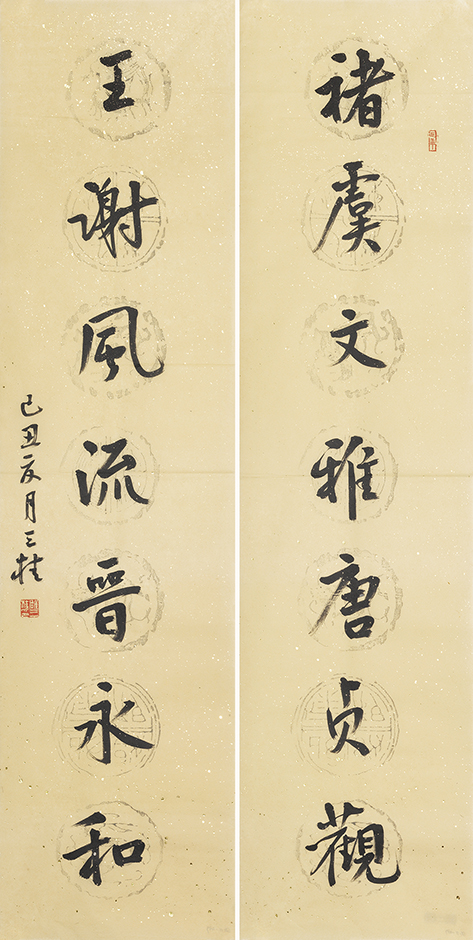 褚虞文雅唐贞觀
王谢風流晉永和
己丑夏月三桂